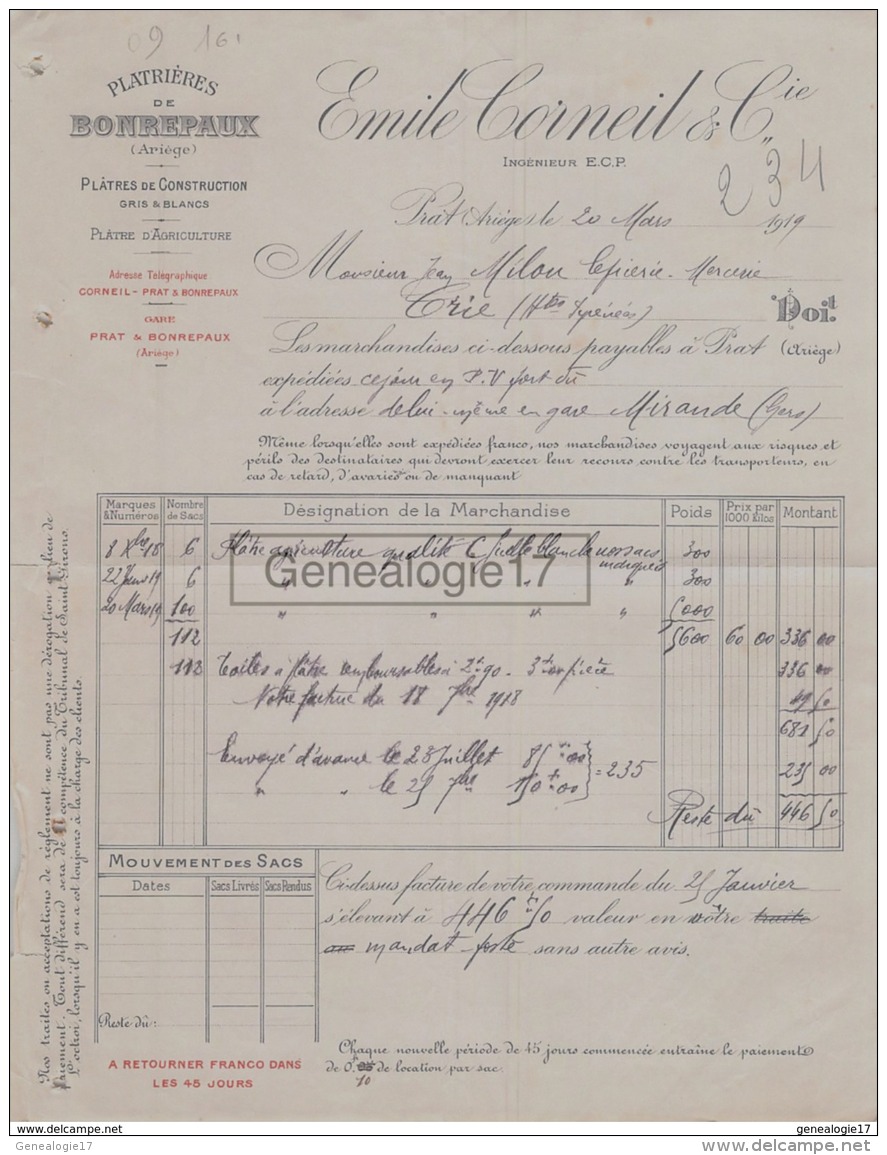 09 161
PLATRIÈRES
DE
BONREPAUX
(Ariège)
PLÂTRES DE CONSTRUCTION
GRIS & BLANCS
PLÂTRE D'AGRICULTURE
Adresse Télégraphique
CORNEIL - PRAT & BONREPAUX
GARE
PRAT & BONREPAUX
(Ariège)
Emile Corneil & Cie
INGÉNIEUR E.C.P.
234
Prat (Ariège) le 20 Mars 1919
Monsieur Jean Milou Epicerie - Mercerie
Trie (Htes Pyrénées) Doit
Les marchandises ci-dessous payables à Prat (Ariège)
expédiées ce jour en P.V port dû
à l'adresse de lui-même en gare Mirande (Gers)
Même lorsqu'elles sont expédiées franco, nos marchandises voyagent aux risques et
périls des destinataires qui devront exercer leur recours contre les transporteurs, en
cas de retard, d'avaries ou de manquant
Marques & Numéros Nombre de Sacs Désignation de la Marchandise Poids Prix par 1000 kilos Montant
8 Xbre 18 6 Plâtre agriculture qualité C ficelle blanche nos sacs marqués 300
22 Janv 19 6 " " " " 300
20 Mars 19 100 " " " " 5000
112 5600 60 00 336 00
112 Toiles à plâtre remboursables à 2f90 - 3f00 pièce 336 00
Notre facture du 18 7bre 1918 49 50
681 50
Envoyé d'avance le 28 Juillet 85f00
" " le 25 7bre 150f00 = 235 235 00
Reste dû 446 50
MOUVEMENT DES SACS
Dates Sacs Livrés Sacs Rendus
Reste dû:
A RETOURNER FRANCO DANS
LES 45 JOURS
Ci-dessus facture de votre commande du 25 Janvier
s'élevant à 446f50 valeur en vôtre traite
ou mandat-poste sans autre avis.
Chaque nouvelle période de 45 jours commencée entraîne le paiement
de 0.05 de location par sac.
10
Nos traites ou acceptations de règlement ne sont pas une dérogation au lieu de
paiement. Tout différend sera de la compétence du Tribunal de Saint-Girons.
L'octroi, lorsqu'il y en a est toujours à la charge des clients.
Genealogie17
www.delcampe.net genealogie17
Genealogie17 www.delcampe.net